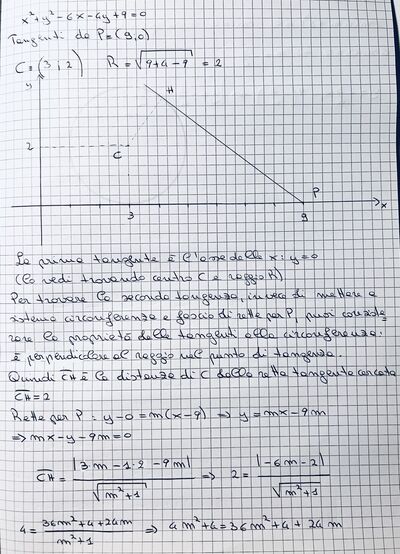 x²+y²-6x-4y+9=0
Tangenti da P=(9,0)
C=(3;2) R=√9+4-9 = 2
y
H
2
C
P
3
9
x
La prima tangente è l'asse delle x: y=0
(lo vedi trovando centro C e raggio R)
Per trovare la seconda tangente, invece di mettere a
sistema circonferenza e fascio di rette per P, puoi conside
rare la proprietà delle tangenti alla circonferenza:
è perpendicolare al raggio nel punto di tangenza.
Quindi CH è la distanza di C dalla retta tangente cercata
CH=2
Rette per P: y-0=m(x-9) ⇒ y=mx-9m
⇒ mx-y-9m=0
CH = |3m-1·2-9m| / √m²+1 ⇒ 2 = |-6m-2| / √m²+1
4 = 36m²+4+24m / m²+1 ⇒ 4m²+4=36m²+4+24m